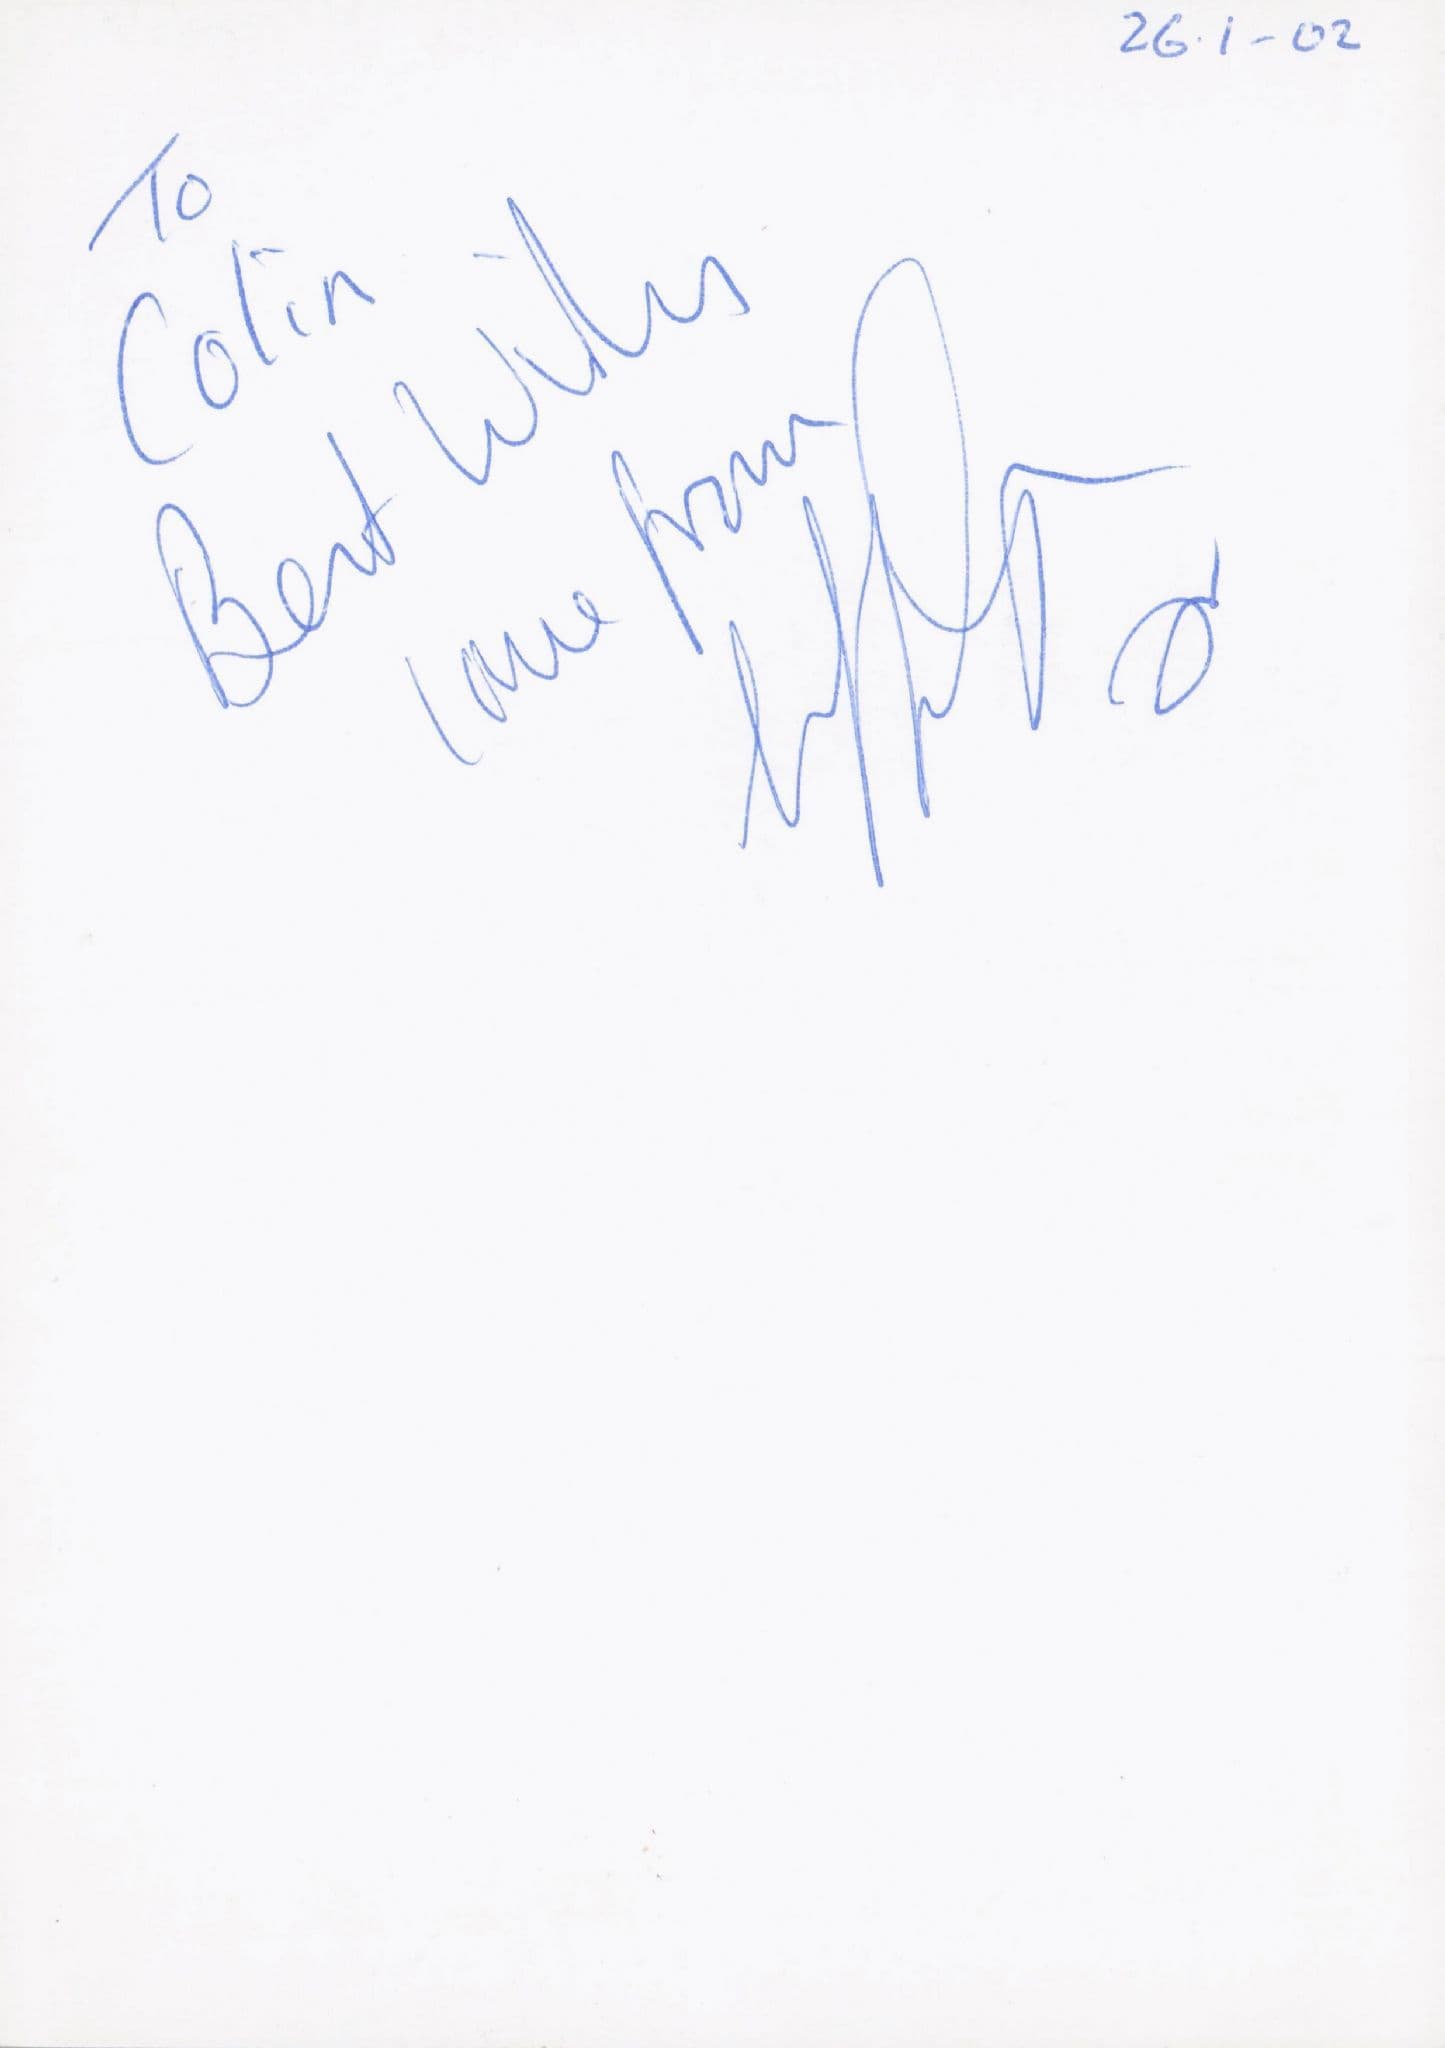 26.1-02
To
Colin
Best Wishes
love from